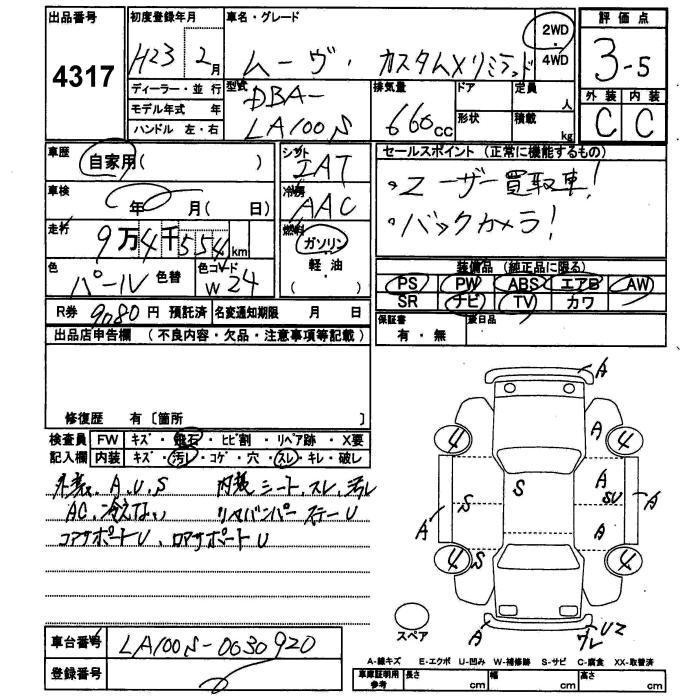 出品番号
4317
初度登録年月
H23 2月
ディーラー・並 行
モデル年式 年
ハンドル 左・右
車名・グレード
ムーヴ・ カスタムXリミテッド
2WD
・
4WD
型式
DBA-
LA100S
排気量
660cc
ドア
形状
定員
人
積載
kg
評価点
3-5
外装 内装
C C
車歴
自家用( )
車検
年 月( 日)
走行
9万4千554km
色
パール 色替
色コード
W24
シフト
IAT
冷房
AAC
燃料
ガソリン
軽・油
( )
セールスポイント (正常に機能するもの)
・ユーザー買取車!
・バックカメラ!
装備品 (純正品に限る)
PS PW ABS エアB AW
SR ナビ TV カワ
保証書
有・無
R券 9080円 預託済 名変通知期限 月 日
出品店申告欄 (不良内容・欠品・注意事項等記載)
修復歴 有〔箇所 〕
検査員 FW キズ・飛石・ヒビ割・リペア跡・X要
記入欄 内装 キズ・汚レ・コゲ・穴・スレ・キレ・破レ
外装、A、U、S 内装シート、スレ、汚レ
AC、冷えない リヤバンパーステーU
コアサポートU、ロアサポートU
A
4 A 4
S A
SU
A S A A
4 S 4
スペア
A UZ
ワレ
車台番号 LA100S-0030920
登録番号
A-線キズ E-エクボ U-凹み W-補修跡 S-サビ C-腐食 XX-取替済
車庫証明用
参考
長さ cm 幅 cm 高さ cm